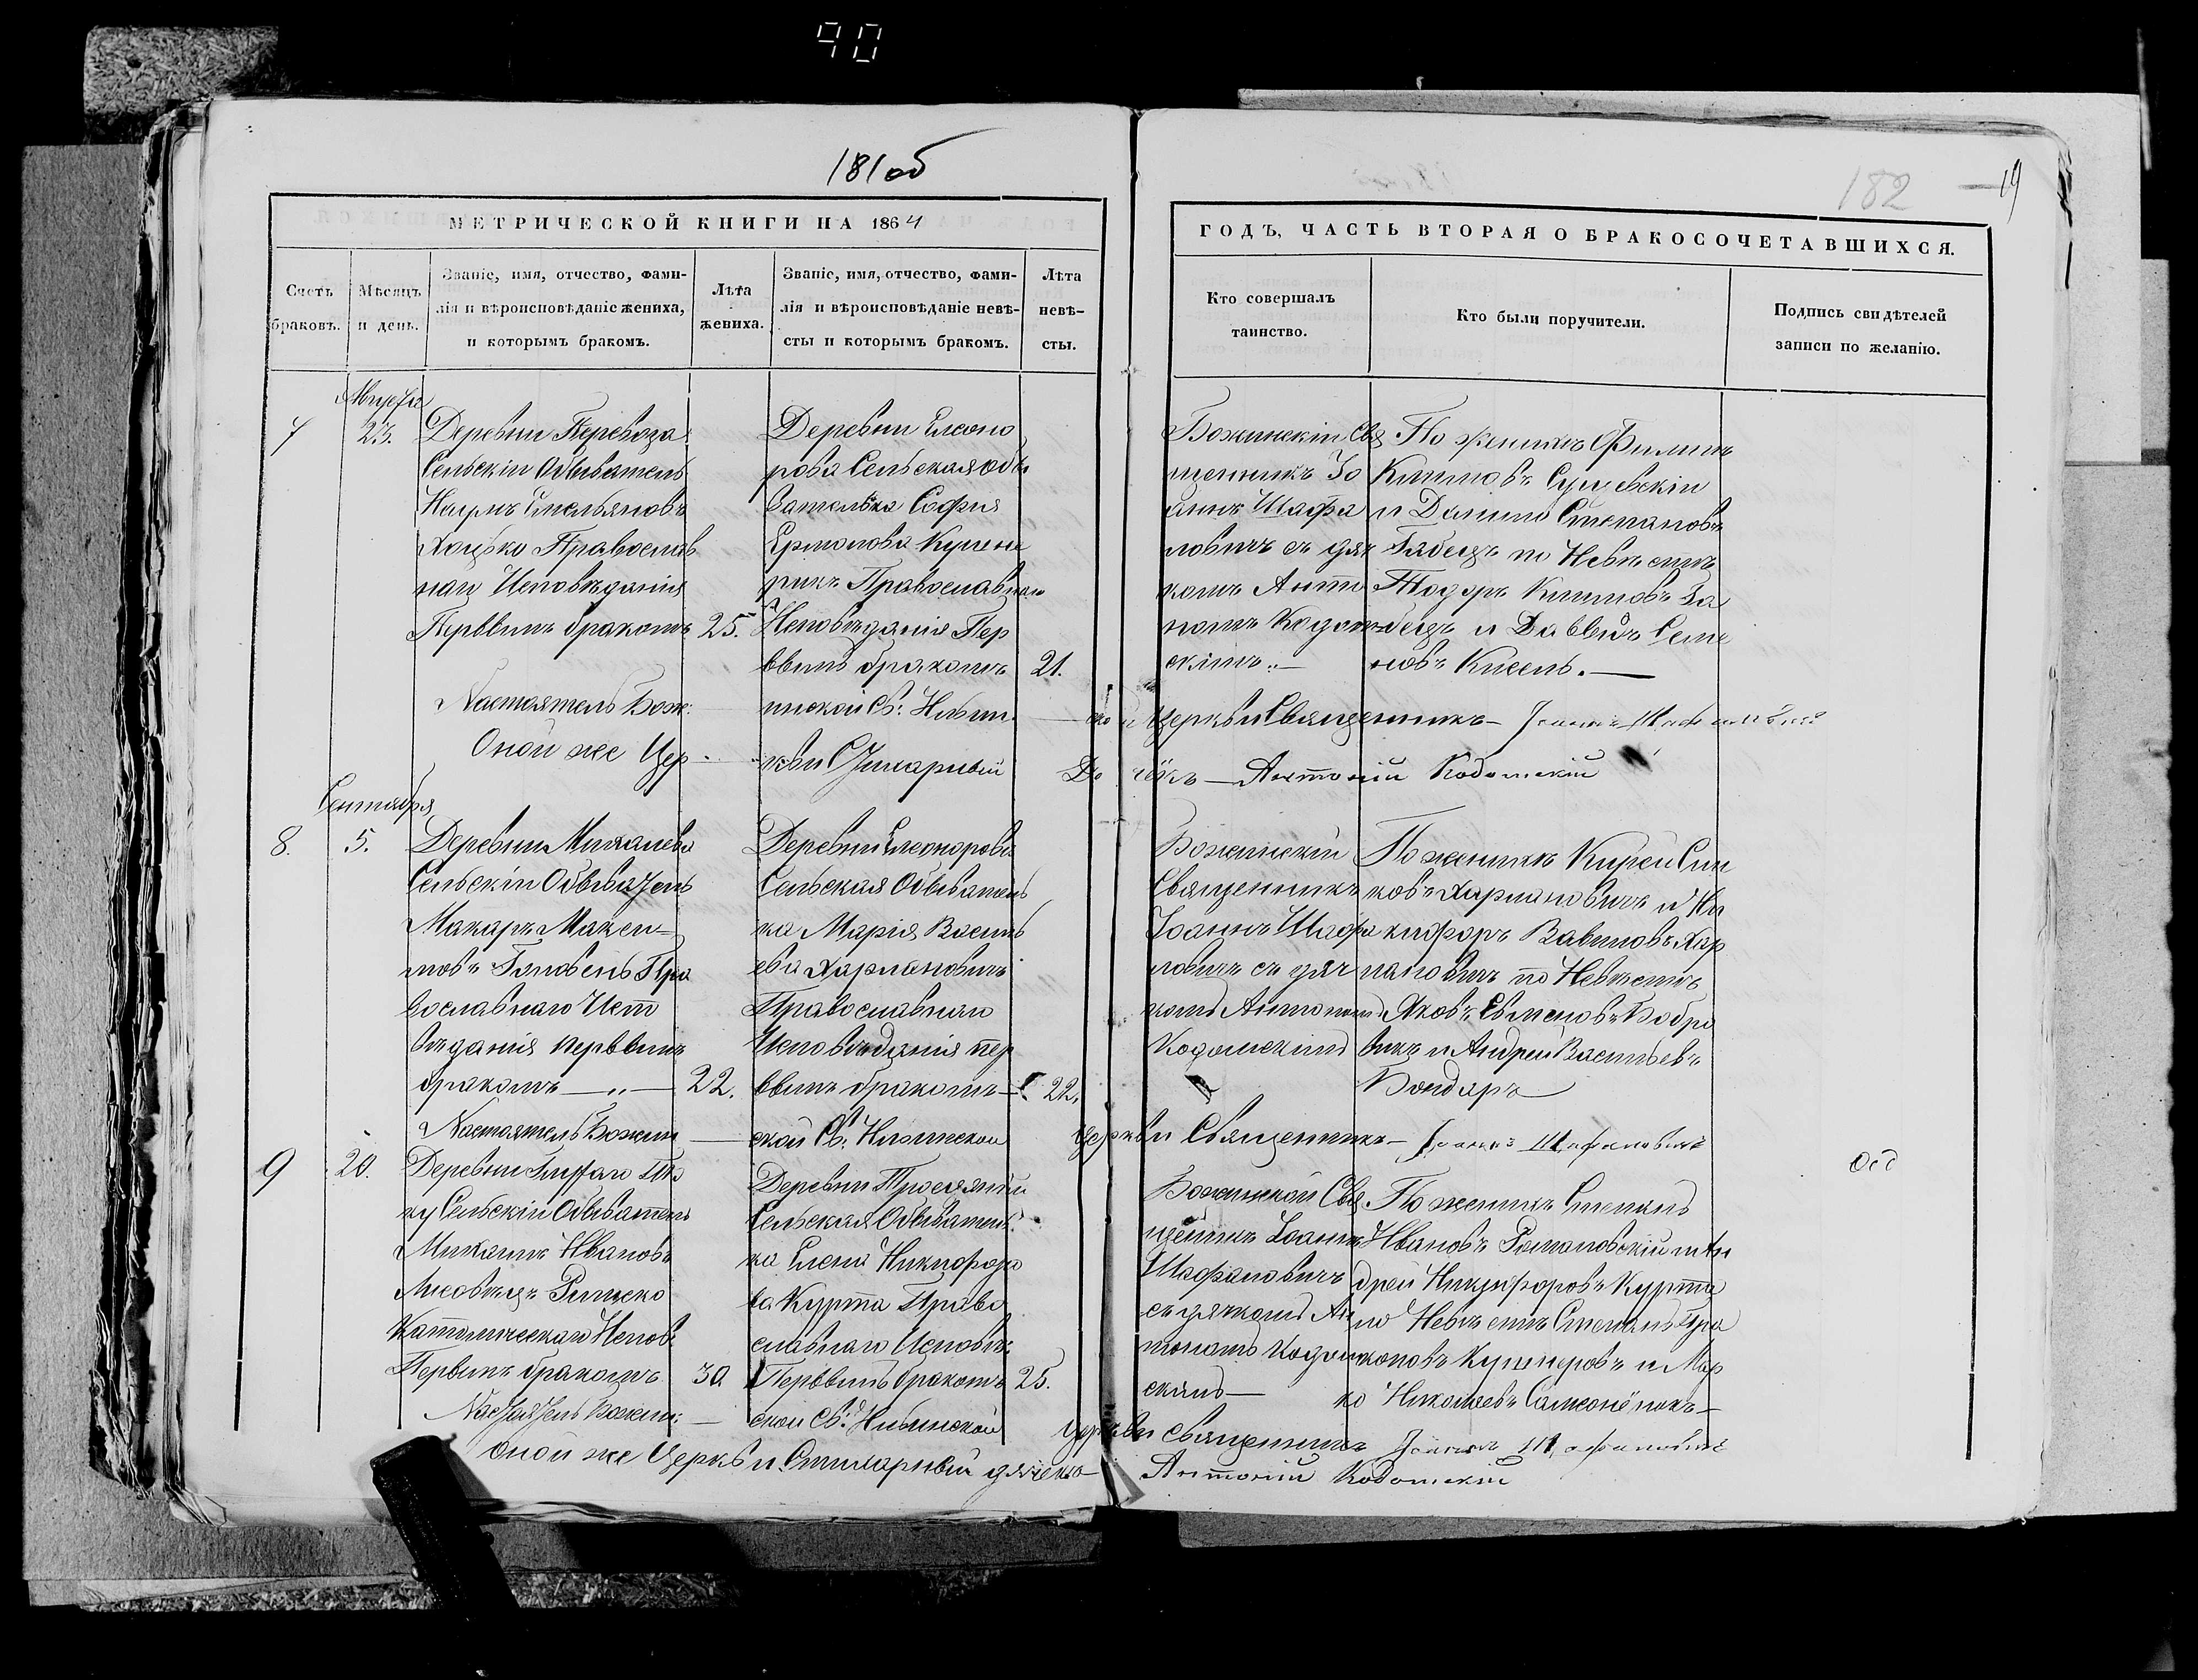 90
181об
182
19
МЕТРИЧЕСКОЙ КНИГИ НА 1864
ГОДЪ, ЧАСТЬ ВТОРАЯ О БРАКОСОЧЕТАВШИХСЯ.
Счетъ браковъ.
Мѣсяцъ и день.
Званіе, имя, отчество, фами-
лія и вѣроисповѣданіе жениха,
и которымъ бракомъ.
Лѣта
жениха.
Званіе, имя, отчество, фами-
лія и вѣроисповѣданіе невѣ-
сты и которымъ бракомъ.
Лѣта
невѣ-
сты.
Кто совершалъ
таинство.
Кто были поручители.
Подпись свидѣтелей
записи по желанію.
7
Августа
23.
Деревни Перевоза
Сельскій Обыватель
Емельяновъ
Православ
наго Исповѣданія
Перввимъ бракомъ 25.
Деревни Елеоно
рова Сельская обы
вателька Софія
Ермолова
Православнаго
Исповѣданія Пер
ввимъ бракомъ 21.
Божинскій Свя
щенникъ Іо
аннъ Шафа
новичъ съ дяч
комъ Анто
номъ Кодом
скимъ
По женихѣ Филипъ
Климовъ
и Данило Степановъ
Бабецъ по Невѣстѣ
Тодоръ Климовъ Ба
бецъ и Даввидъ Семе
новъ Кисель.
Настоятель Божинской Св: церкви Священникъ Іоаннъ Шафановичъ
Оной же Церкви Дьячекъ Антоній Кодомскій
8.
Сентября
5.
Деревни Михалева
Сельскій Обыватель
Макаръ Макси
мовъ Головень Пра
вославнаго Испо
вѣданія перввимъ
бракомъ 22.
Деревни Елеонорова
Сельская Обыватель
ка Марія Василь
ева Харлановичъ
Православнаго
Исповѣданія пер
ввимъ бракомъ 22.
Божинскій
Священникъ
Іоаннъ Шафа
новичъ съ дяч
комъ Антономъ
Кодомскимъ
По женихѣ
ковъ Харлановичъ и Ни
кифоръ Вавиловъ Хар
лановичъ по Невѣстѣ
Яковъ Бобро
викъ и Андрей Васильевъ
Бондаръ
Настоятель Божинской Св: церкви Священникъ Іоаннъ Шафановичъ
9
20.
Деревни
Сельскій Обыватель
Ивановъ
Лисовецъ Римско
Католическаго Испов:
Первимъ бракомъ 30.
Деревни
Сельская Обыватель
ка Елена Никифоро
ва Курта Право
славнаго Исповѣ:
Перввимъ бракомъ 25.
Божинской Свя
щенникъ Іоаннъ
Шафановичъ
съ дячкомъ Ан
тономъ Кодом
скимъ
По женихѣ Степанъ
Ивановъ Романовскій и Ан
дрей Никифоровъ Курта
по Невѣстѣ Степанъ Пра
коповъ и Мар
ко Николаевъ
Настоятель Божинской Св: церкви Священникъ Іоаннъ Шафановичъ
Оной же Церкви дячекъ Антоній Кодомскій